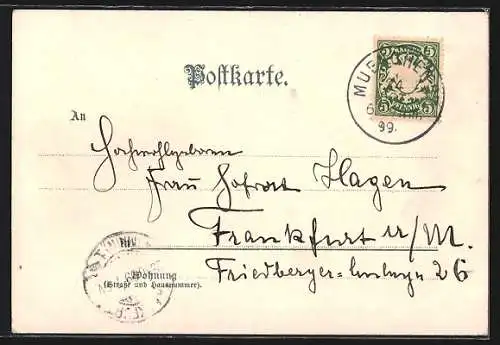 Postkarte.
MUENCHEN
99.
5 5
PFENNIG
An
Hochwohlgeboren
Frau Hofrat Hagen
Frankfurt a/M.
Wohnung
(Straße und Hausnummer).
Friedberger-Anlage 26